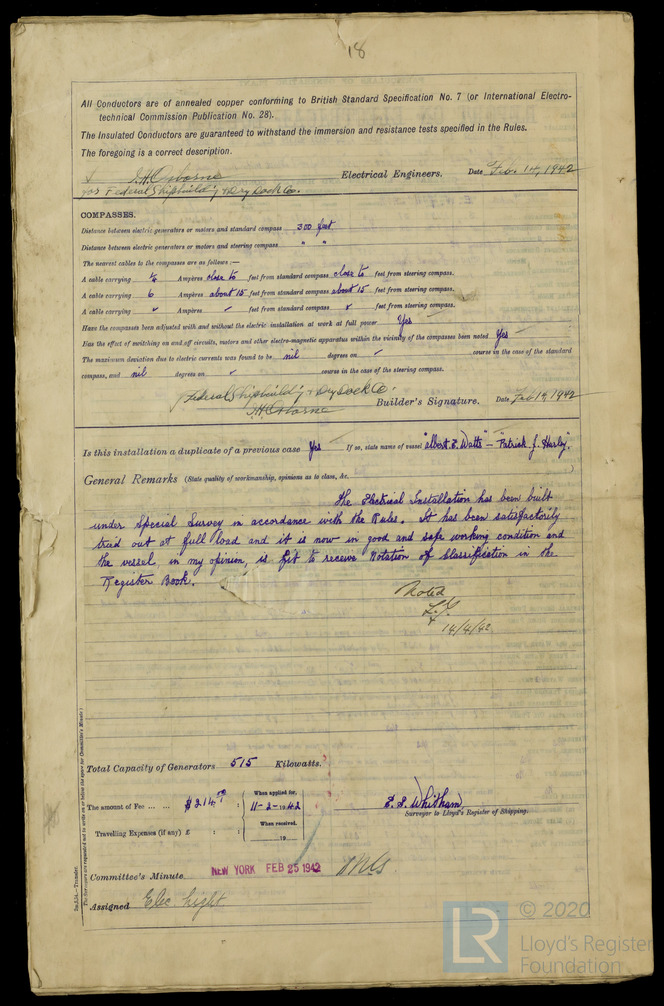 18
All Conductors are of annealed copper conforming to British Standard Specification No. 7 (or International Electro-
technical Commission Publication No. 28).
The Insulated Conductors are guaranteed to withstand the immersion and resistance tests specified in the Rules.
The foregoing is a correct description.
J.H. Osborne Electrical Engineers. Date Feb. 14, 1942
for Federal Shipbuild'g & Dry Dock Co.
COMPASSES.
Distance between electric generators or motors and standard compass 300 feet
Distance between electric generators or motors and steering compass " "
The nearest cables to the compasses are as follows:—
A cable carrying Ampères close to feet from standard compass close to feet from steering compass.
A cable carrying 6 Ampères about 15 feet from standard compass about 15 feet from steering compass.
A cable carrying Ampères feet from standard compass feet from steering compass.
Have the compasses been adjusted with and without the electric installation at work at full power Yes
Has the effect of switching on and off circuits, motors and other electro-magnetic apparatus within the vicinity of the compasses been noted Yes
The maximum deviation due to electric currents was found to be nil degrees on course in the case of the standard
compass, and nil degrees on course in the case of the steering compass.
Federal Shipbuild'g & Dry Dock Co.
J.H. Osborne Builder's Signature. Date Feb 14, 1942
Is this installation a duplicate of a previous case Yes If so, state name of vessel "Albert E. Watts" – "Patrick J. Hurley"
General Remarks (State quality of workmanship, opinions as to class, &c. )
The Electrical Installation has been built
under Special Survey in accordance with the Rules. It has been satisfactorily
tried out at full load and it is now in good and safe working condition and
the vessel, in my opinion, is fit to receive Notation of Classification in the
Register Book.
Noted
14/4/42
Total Capacity of Generators 515 Kilowatts.
The amount of Fee ... ... $214.00 : : When applied for, 11-2-1942
Travelling Expenses (if any) £ : : When received, 19
E. S. Whitham
Surveyor to Lloyd's Register of Shipping.
Committee's Minute NEW YORK FEB 25 1942
Assigned Elec. Light
5m,1,34.—Transfer.
(The Surveyors are requested not to write on or below the space for Committee's Minute.)
LR
© 2020
Lloyd's Register
Foundation